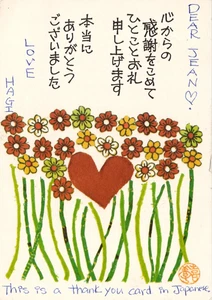 DEAR JEAN
心からの
感謝をこめて
ひとことお礼
申し上げます
本当に
ありがとう
ございました
LOVE
HAGI
This is a thank you card in Japanese